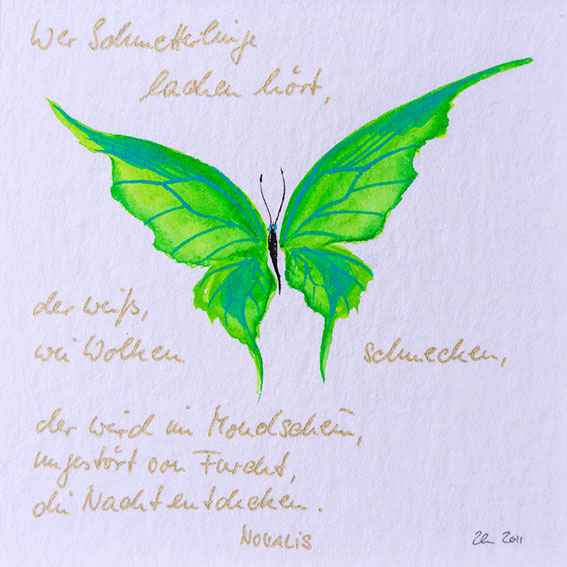 Wer Schmetterlinge
lachen hört,
der weiß,
wie Wolken schmecken,
der wird im Mondschein,
ungestört von Furcht,
die Nacht entdecken.
NOVALIS
2011